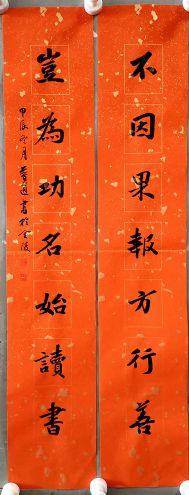 不因果報方行善
豈為功名始讀書
甲辰 月 書於金陵